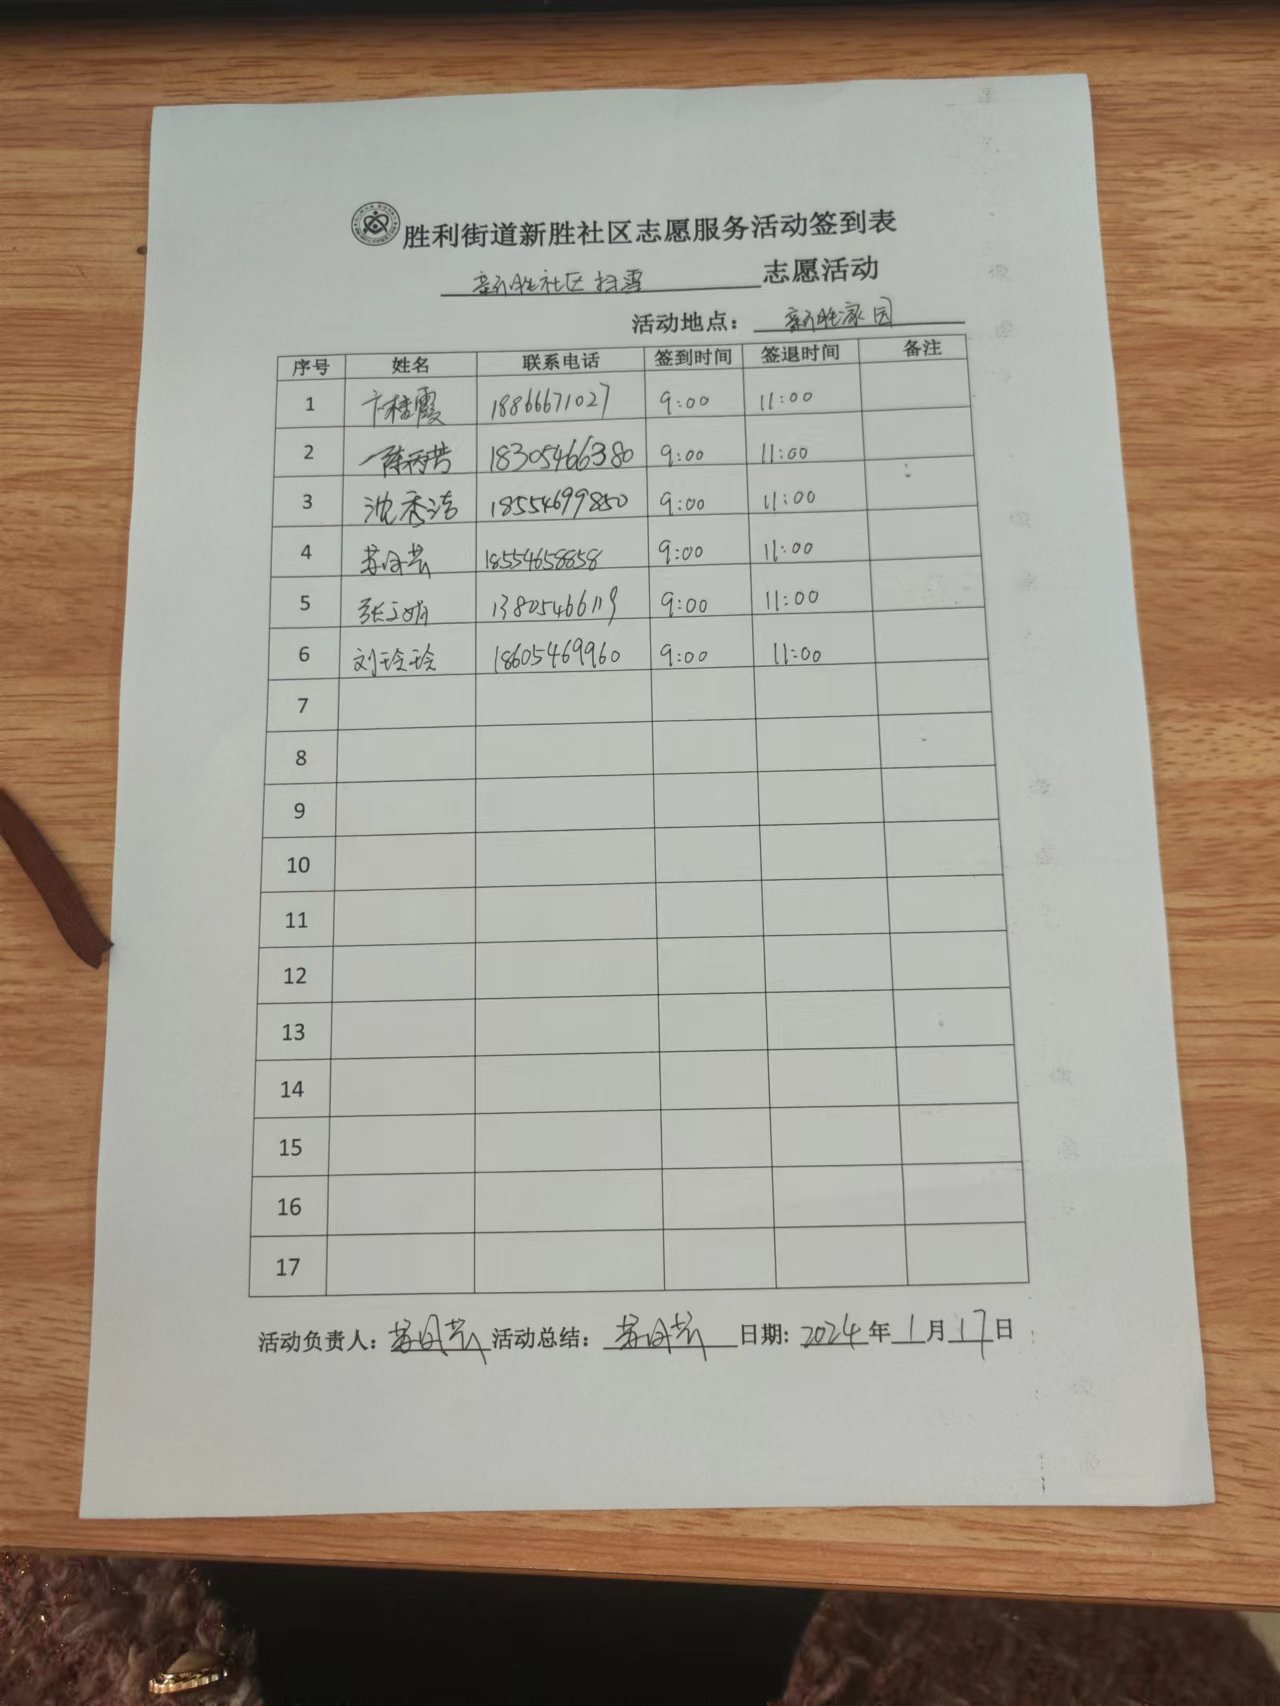 胜利街道新胜社区志愿服务活动签到表
新胜社区扫雪 志愿活动
活动地点： 新胜家园
序号 姓名 联系电话 签到时间 签退时间 备注
1 卞桂霞 18866671027 9:00 11:00
2 陈丙芸 18305466380 9:00 11:00
3 沈秀洁 18554699850 9:00 11:00
4 18554658858 9:00 11:00
5 张文娟 13805466119 9:00 11:00
6 刘玲玲 18605469960 9:00 11:00
7
8
9
10
11
12
13
14
15
16
17
活动负责人： 活动总结： 日期: 2024年1月17日